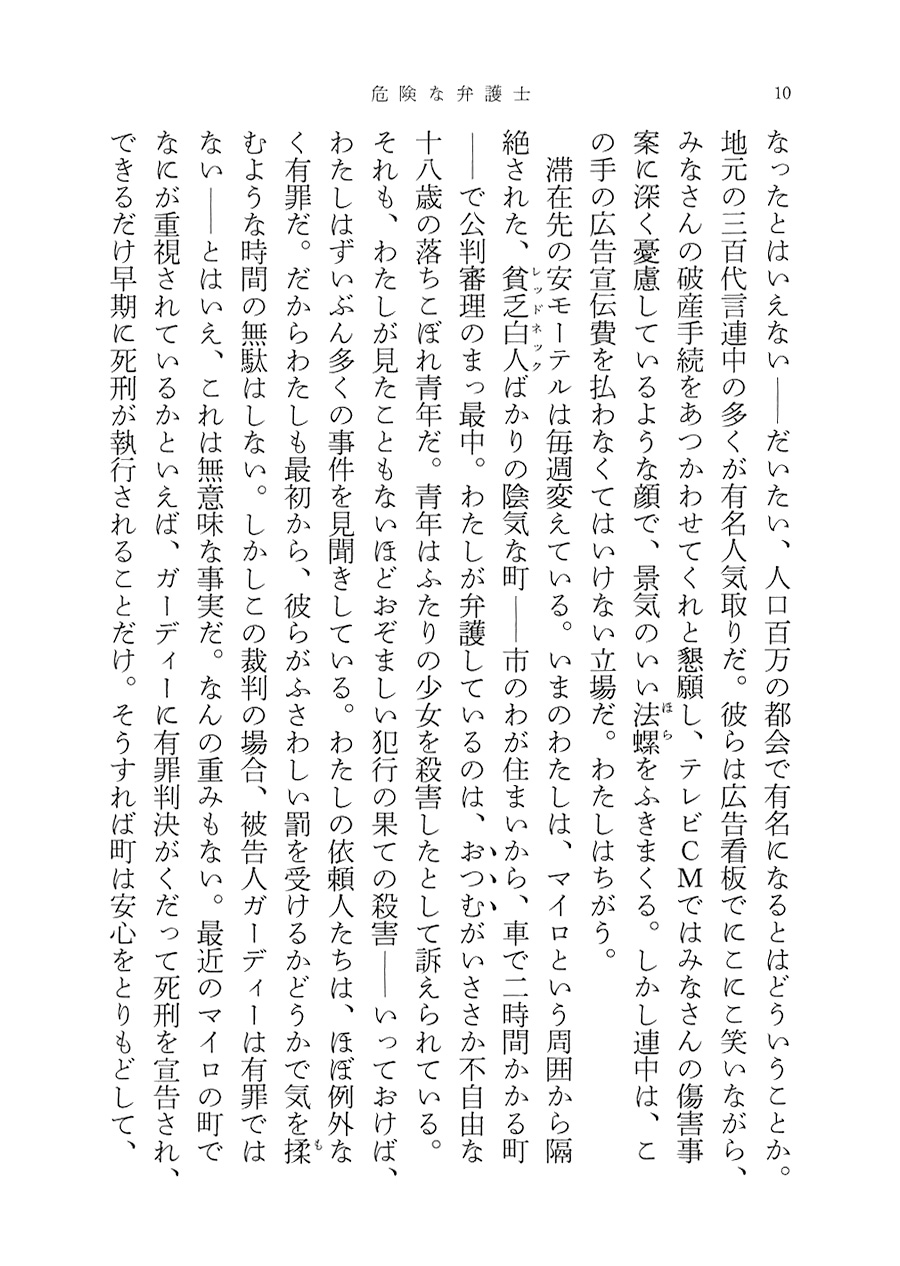 危険な弁護士
10
なったとはいえない――だいたい、人口百万の都会で有名になるとはどういうことか。
地元の三百代言連中の多くが有名人気取りだ。彼らは広告看板でにこにこ笑いながら、
みなさんの破産手続をあつかわせてくれと懇願し、テレビCMではみなさんの傷害事
案に深く憂慮しているような顔で、景気のいい法螺をふきまくる。しかし連中は、こ
ほら
の手の広告宣伝費を払わなくてはいけない立場だ。わたしはちがう。
滞在先の安モーテルは毎週変えている。いまのわたしは、マイロという周囲から隔
絶された、貧乏白人ばかりの陰気な町――市のわが住まいから、車で二時間かかる町
レッドネック
――で公判審理のまっ最中。わたしが弁護しているのは、おつむがいささか不自由な
十八歳の落ちこぼれ青年だ。青年はふたりの少女を殺害したとして訴えられている。
それも、わたしが見たこともないほどおぞましい犯行の果ての殺害――いっておけば、
わたしはずいぶん多くの事件を見聞きしている。わたしの依頼人たちは、ほぼ例外な
く有罪だ。だからわたしも最初から、彼らがふさわしい罰を受けるかどうかで気を揉
も
むような時間の無駄はしない。しかしこの裁判の場合、被告人ガーディーは有罪では
ない――とはいえ、これは無意味な事実だ。なんの重みもない。最近のマイロの町で
なにが重視されているかといえば、ガーディーに有罪判決がくだって死刑を宣告され、
できるだけ早期に死刑が執行されることだけ。そうすれば町は安心をとりもどして、